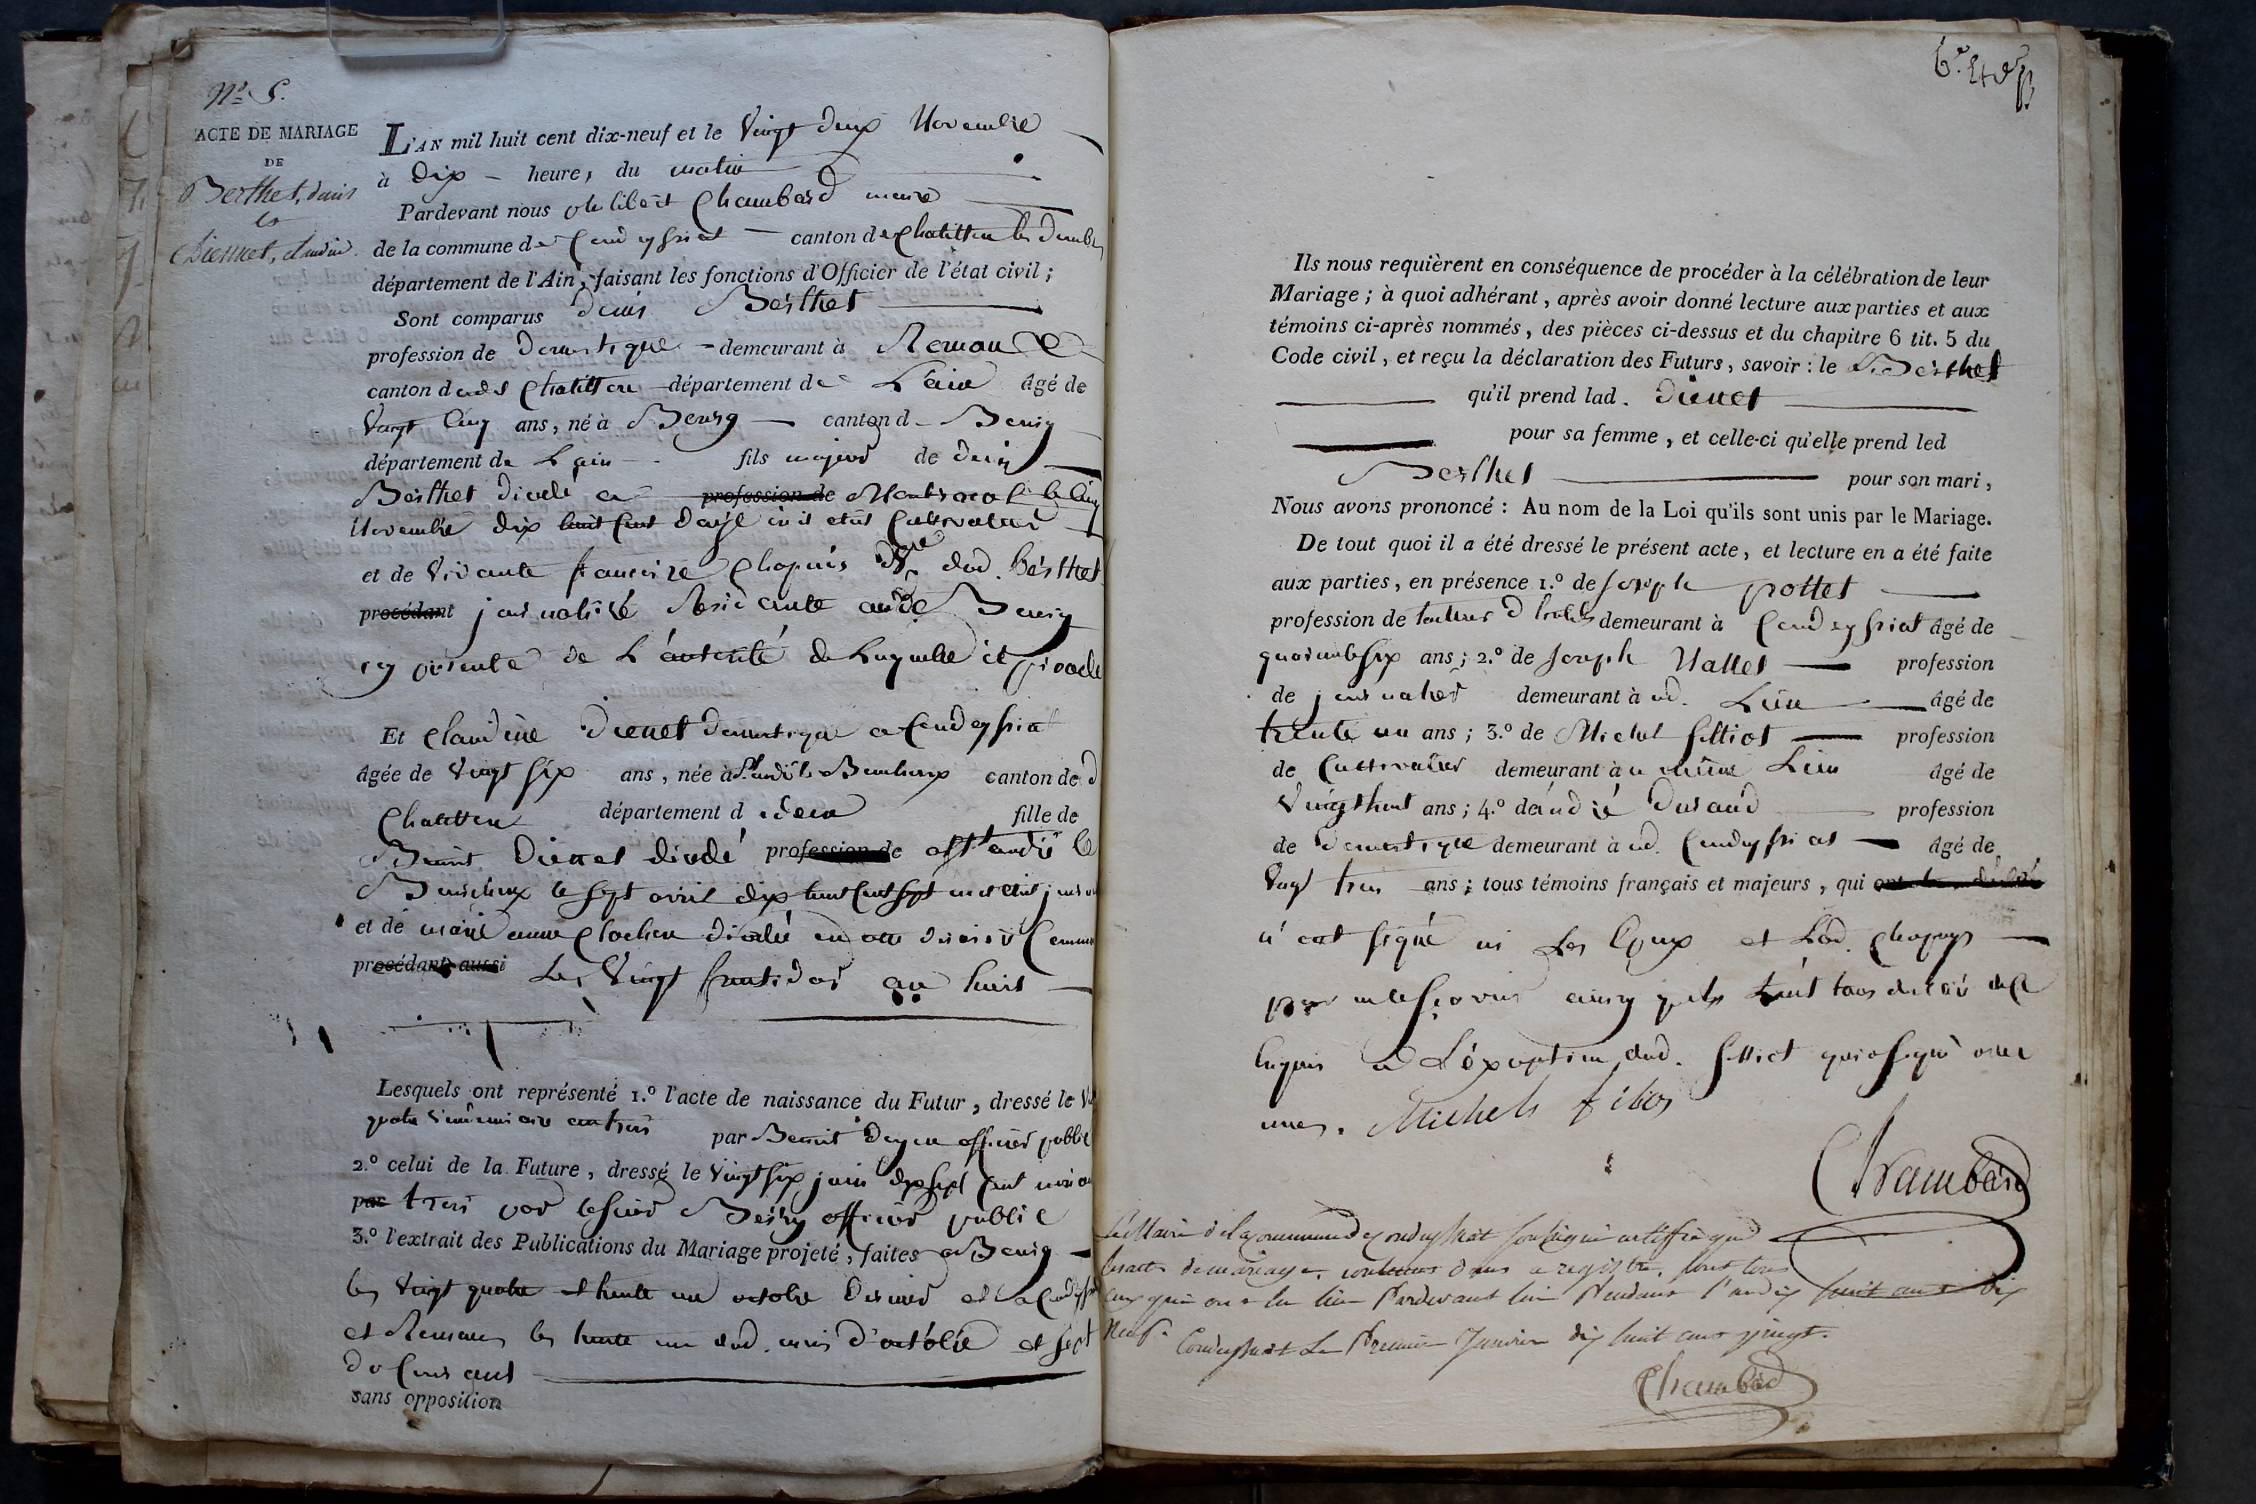 N.° 5.
ACTE DE MARIAGE
DE
Berthet, denis
et
dienet, claudine.
L'AN mil huit cent dix-neuf et le vingt deux Novembre
à dix heures du matin
Pardevant nous philibert Chambard maire
de la commune de Condeyssiat canton de chatillon les dombes
département de l'Ain, faisant les fonctions d'Officier de l'état civil ;
Sont comparus denis Berthet
profession de domestique demeurant à Romans
canton dud chatillon département de L'ain âgé de
vingt cinq ans, né à Bourg canton d Bourg
département de L'ain fils majeur de denis
Berthet décédé a profession de Montracol le cinq
Novembre dix huit cent douze où il était cultivateur
et de vivante francoise Chapuis dud. berthet
procédant journalière Residante aud Bourg
cy présente de L'autorité de Laquelle il procède
Et claudine dienet domestique a Condeyssiat
âgée de vingt six ans, née à St andré le Bouchoux canton de
Chatillon département d fille de
Benoit dienet décédé profession de a St andré le
Bouchoux le sept avril dix huit cent sept
et de marie anne décédée Commune
procédant aussi Le vingt fructidor an huit
Lesquels ont représenté 1.° l'acte de naissance du Futur, dressé le
quatre vendemiaire an trois par Benoit officier public
2.° celui de la Future, dressé le vingt six juin dix sept cent
par trois par officier public
3.° l'extrait des Publications du Mariage projeté, faites a Bourg
les vingt quatre et trente un octobre dernier et a
et Romans les trente un dud. mois d'octobre et sept
du courant
sans opposition
Ils nous requièrent en conséquence de procéder à la célébration de leur
Mariage ; à quoi adhérant, après avoir donné lecture aux parties et aux
témoins ci-après nommés, des pièces ci-dessus et du chapitre 6 tit. 5 du
Code civil, et reçu la déclaration des Futurs, savoir : le d. Berthet
qu'il prend lad. dienet
pour sa femme, et celle-ci qu'elle prend led
Berthet pour son mari,
Nous avons prononcé : Au nom de la Loi qu'ils sont unis par le Mariage.
De tout quoi il a été dressé le présent acte, et lecture en a été faite
aux parties, en présence 1.° de Joseph pottet
profession de tailleur d'habits demeurant à Condeyssiat âgé de
quarante six ans ; 2.° de Joseph Vallet profession
de journalier demeurant à ud. Lieu âgé de
trente un ans ; 3.° de Michel filliot profession
de cultivateur demeurant à u même Lieu âgé de
vingt huit ans ; 4.° de andré durand profession
de domestique demeurant à ud. Condeyssiat âgé de
vingt trois ans ; tous témoins français et majeurs, qui
n'ont signé ni Les Epoux et Lad. chapuys
pour ne le savoir ainsy qu'ils L'ont tous déclaré de ce
Enquis a L'exception dud. filliot qui a signé avec
nous. Michel filiot
Chambard
Le Maire de la commune de Condeyssiat soussigné certiffie que
les actes de mariage contenus dans ce registre, sont tous
ceux qui ont eu lieu Pardevant lui Pendant l'an dix huit cent dix
Neuf. Condeyssiat Le Premier Janvier dix huit cent vingt.
Chambard